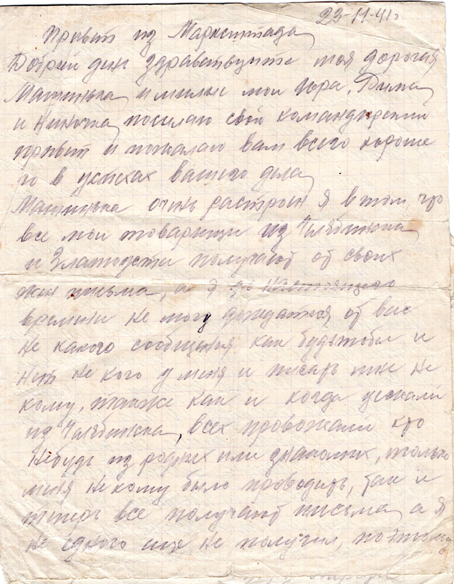 23-11-41г.
Привет из Марксштада
Добрий ден здравствуйте моя дорогая
Машинька и милые мои Юра, Дима
и Ниночка посилаю свой командирский
привет и пожелаю вам всего хороше
го в успехах вашего дела
Машинька очень растроен я в том, что
все мои товарищи из Челябинска
и Златоуста получают от своих
жен письма, а я до настоящего
времени не могу дождатся от вас
не какого сообщения как будьтобы и
нет не кого у меня и писать мне не
кому, также как и когда уезжали
из Челябинска, всех провожали кто
небудь из родних или знакомих, только
меня некому было проводить, так и
теперь все получают письма а я
не одного еще не получил, поэтому